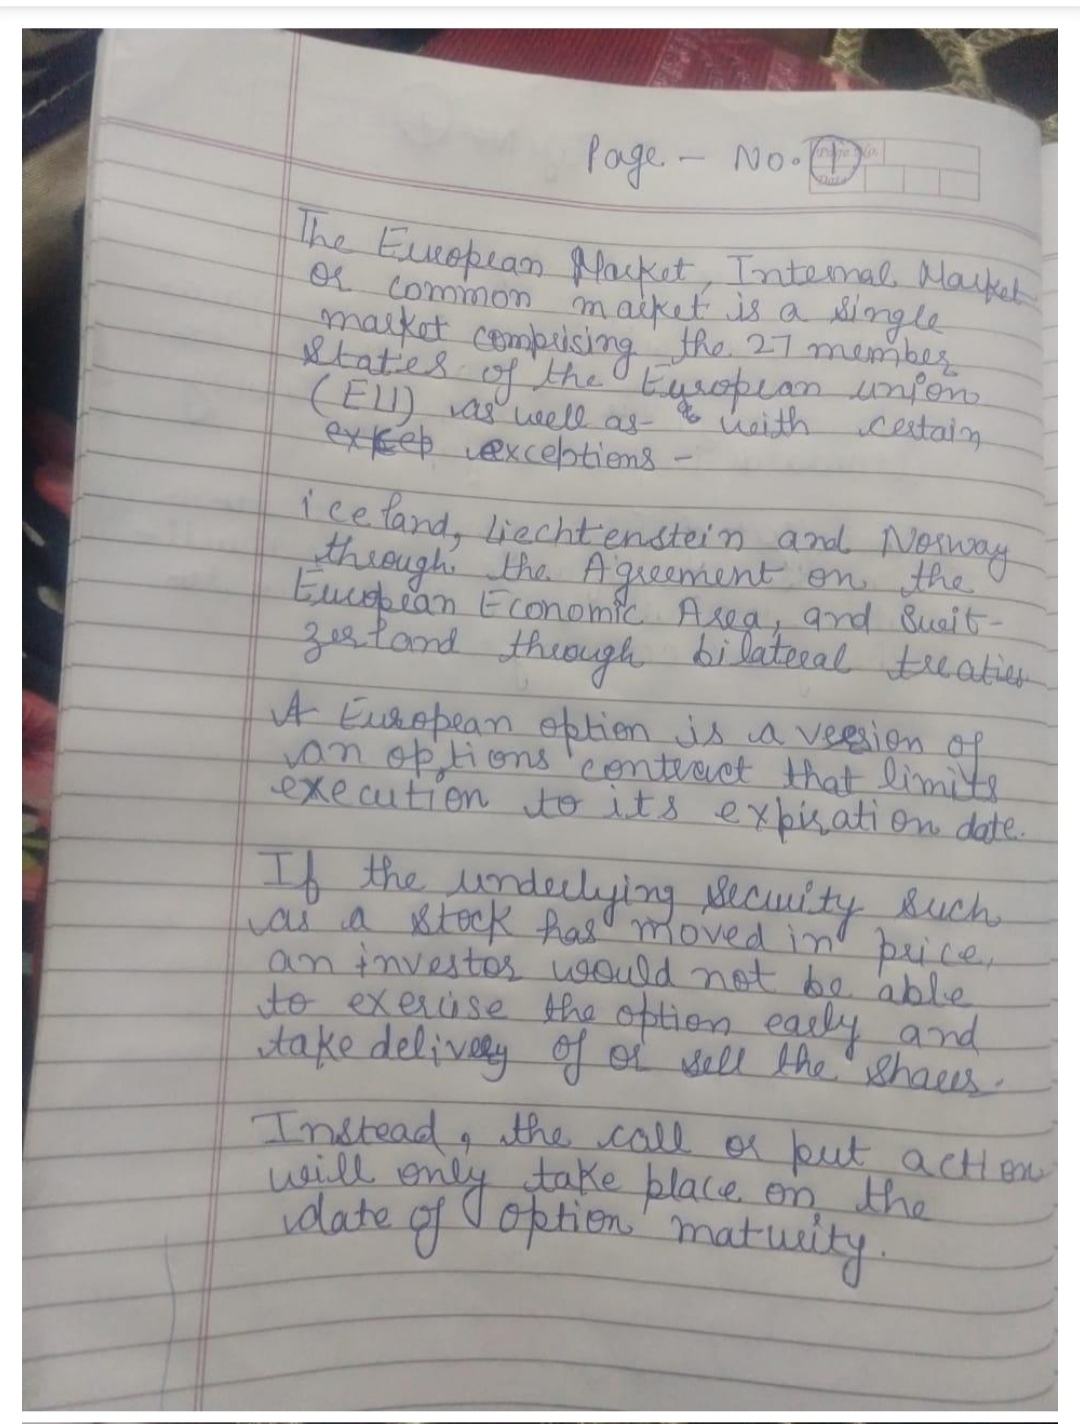 Page - No. 1
The European Market, Internal Market
or common market is a single
market comprising the 27 member
states of the European union
(EU) as well as - & with certain
exkep exceptions -
iceland, Liechtenstein and Norway
through the Agreement on the
European Economic Area, and Swit-
zerland through bilateral treaties
A European option is a version of
an options contract that limits
execution to its expiration date.
If the underlying security such
as a stock has moved in price,
an investor would not be able
to exercise the option early and
take delivery of or sell the shares.
Instead, the call or put action
will only take place on the
date of option maturity.